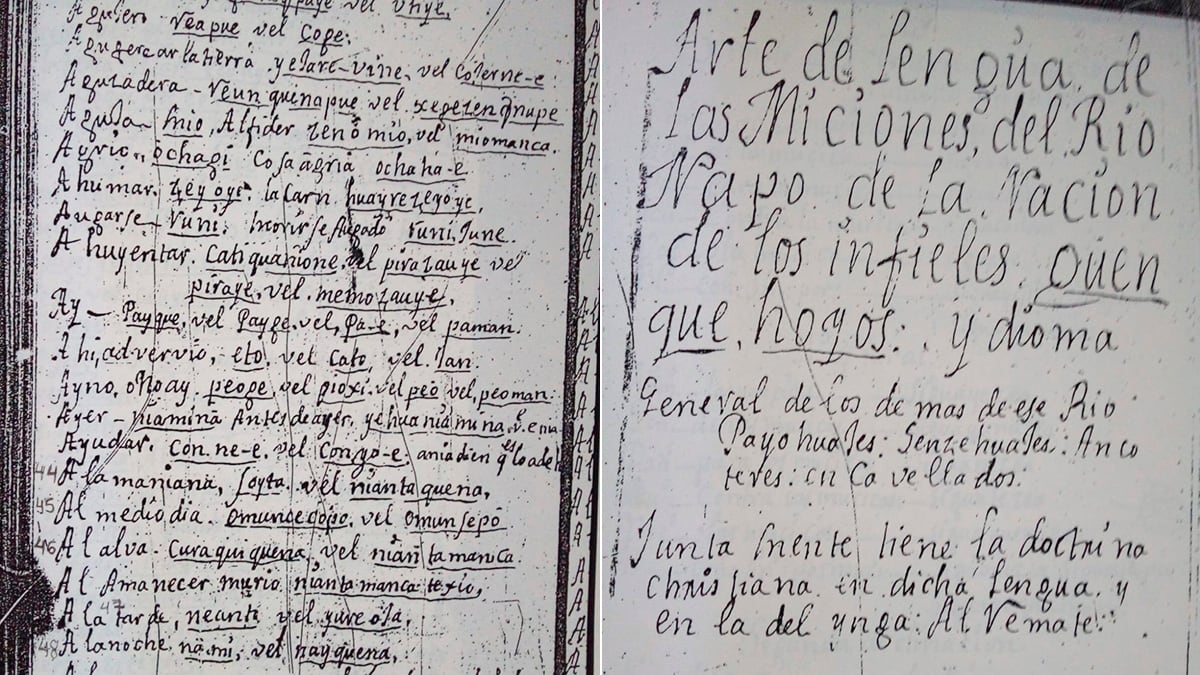 vel
Agujero veapue vel Cope.
Agugerear la tierra yejare-vine, vel Coterne-e
Aguzadera - veunquenapue vel
Aguda - mio, Alfider zenomio, vel miomanca.
Agrio, ochagi Cosa agria ochaha-e
Ahumar. zeyoye. la Carn. huayrezeyoye,
runi. morirse runi, June.
Ahuyentar. Catiguanione. vel pirazauye vel
piraye, vel memozauye,
Ay - Payque, vel Payge. vel, Pa-e, vel paman.
Ahi, advervio, eto, vel Cato, vel Jan.
Ayno, o Noay. peoge, vel pioxi. vel peo vel, peoman.
Ayer - niamina Antes de ayer, yehuaniamina,
Ayudar. Con.ne-e. vel Conzo-e.
44 A la maniana, soyta. vel niantaquena,
45 Al medio dia. omunecopo. vel omunsepo
46 Al alva. Curaquiquena, vel niantamanca.
Al Amanecer murio niantamanca
47 A la tarde, neanti vel yureoja,
48 A la noche, na.mi, vel nayquena,
Arte de lengua de
las Miciones, del Rio
Napo. de la Nacion
de los infieles. quen
que, hoyos: y dioma
General de los de mas de ese Rio
Payohuajes: Senzehuajes: Anco
teres: en Ca vellados.
Junta mente tiene la doctrina
christiana en dicha lengua y
en la del ynga: Al Vemate: